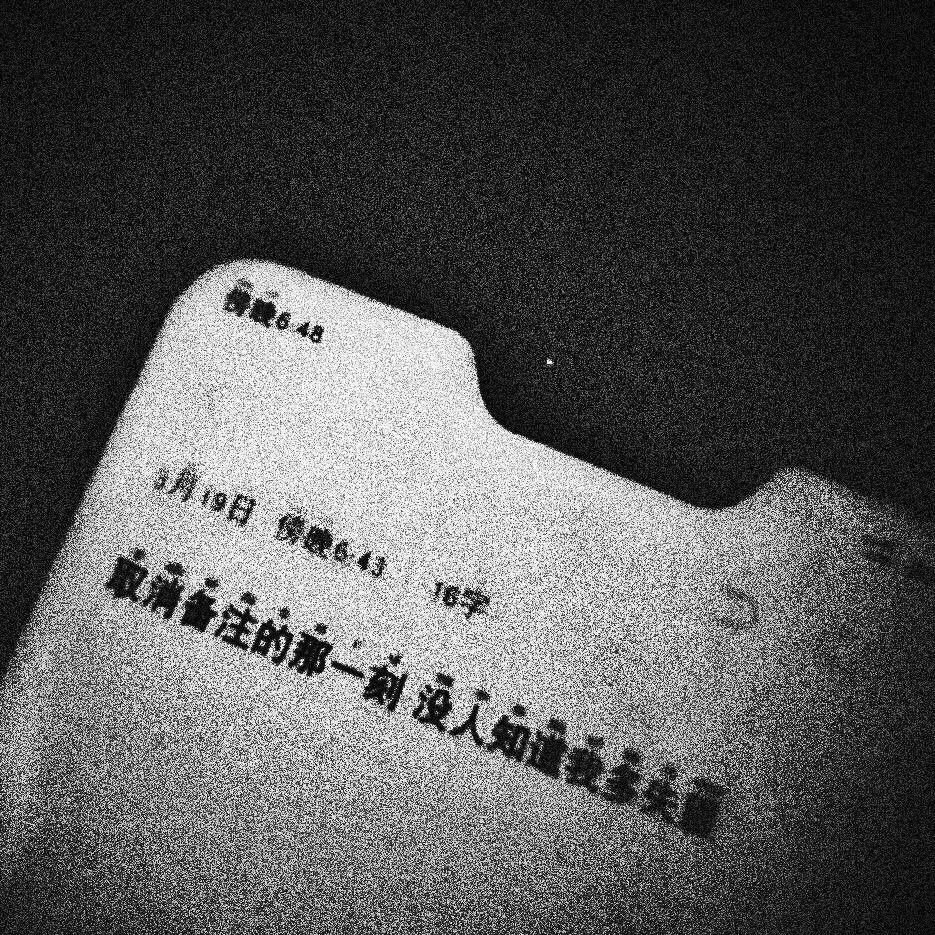 傍晚6:48
3月19日 傍晚6:43 16字
取消备注的那一刻 没人知道我多失望